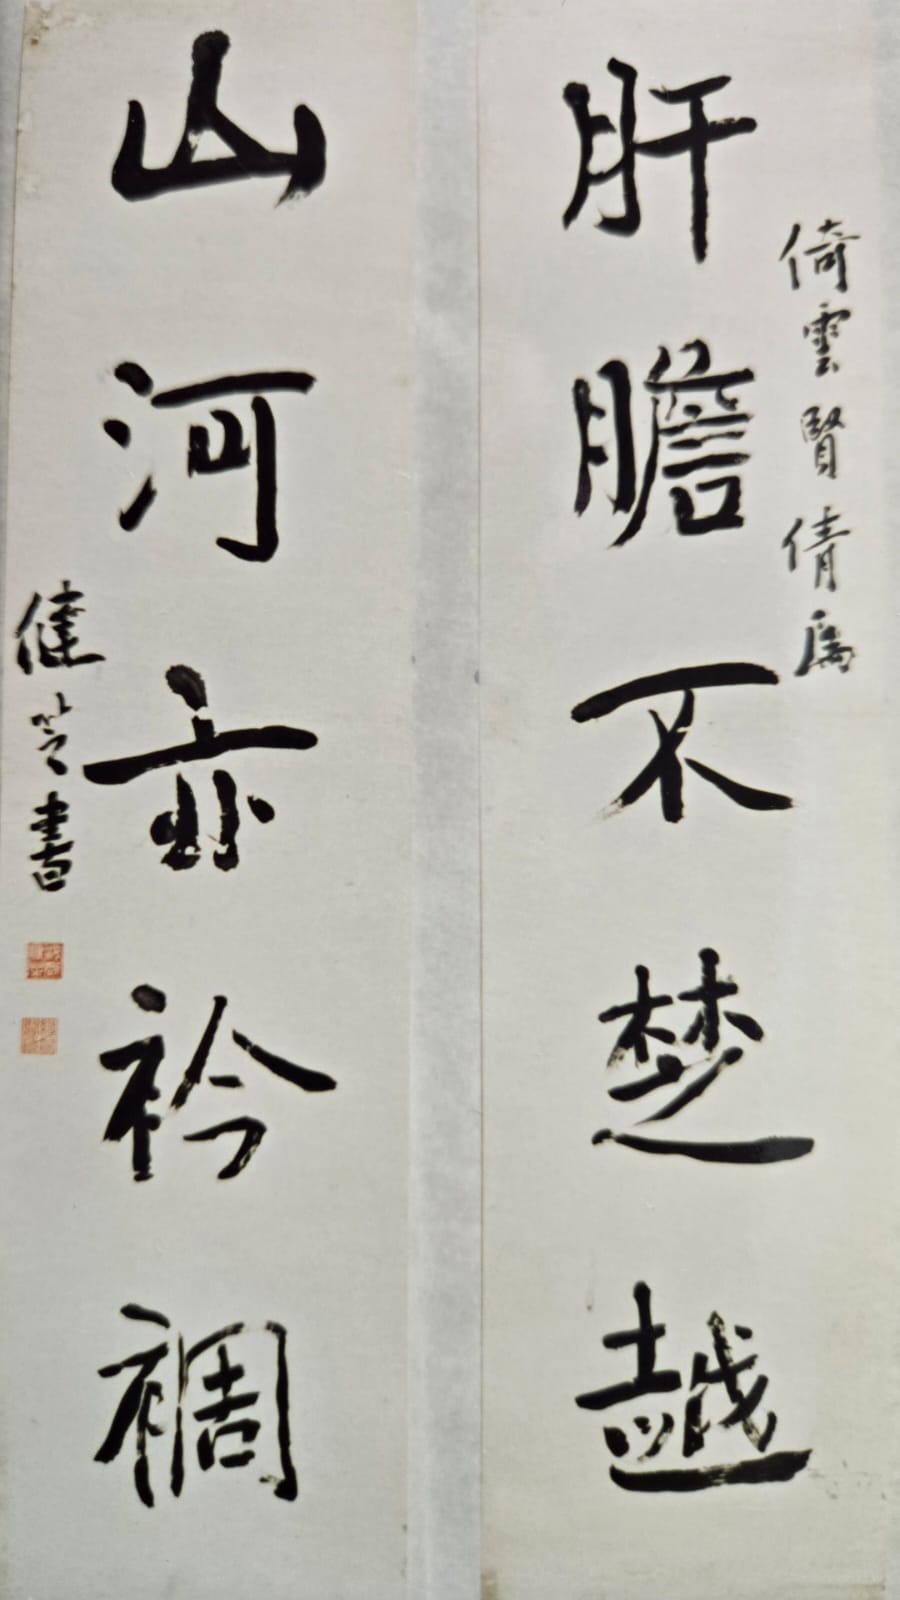 倚雲賢倩屬
肝膽不楚越
山河亦衿裯
健笁書